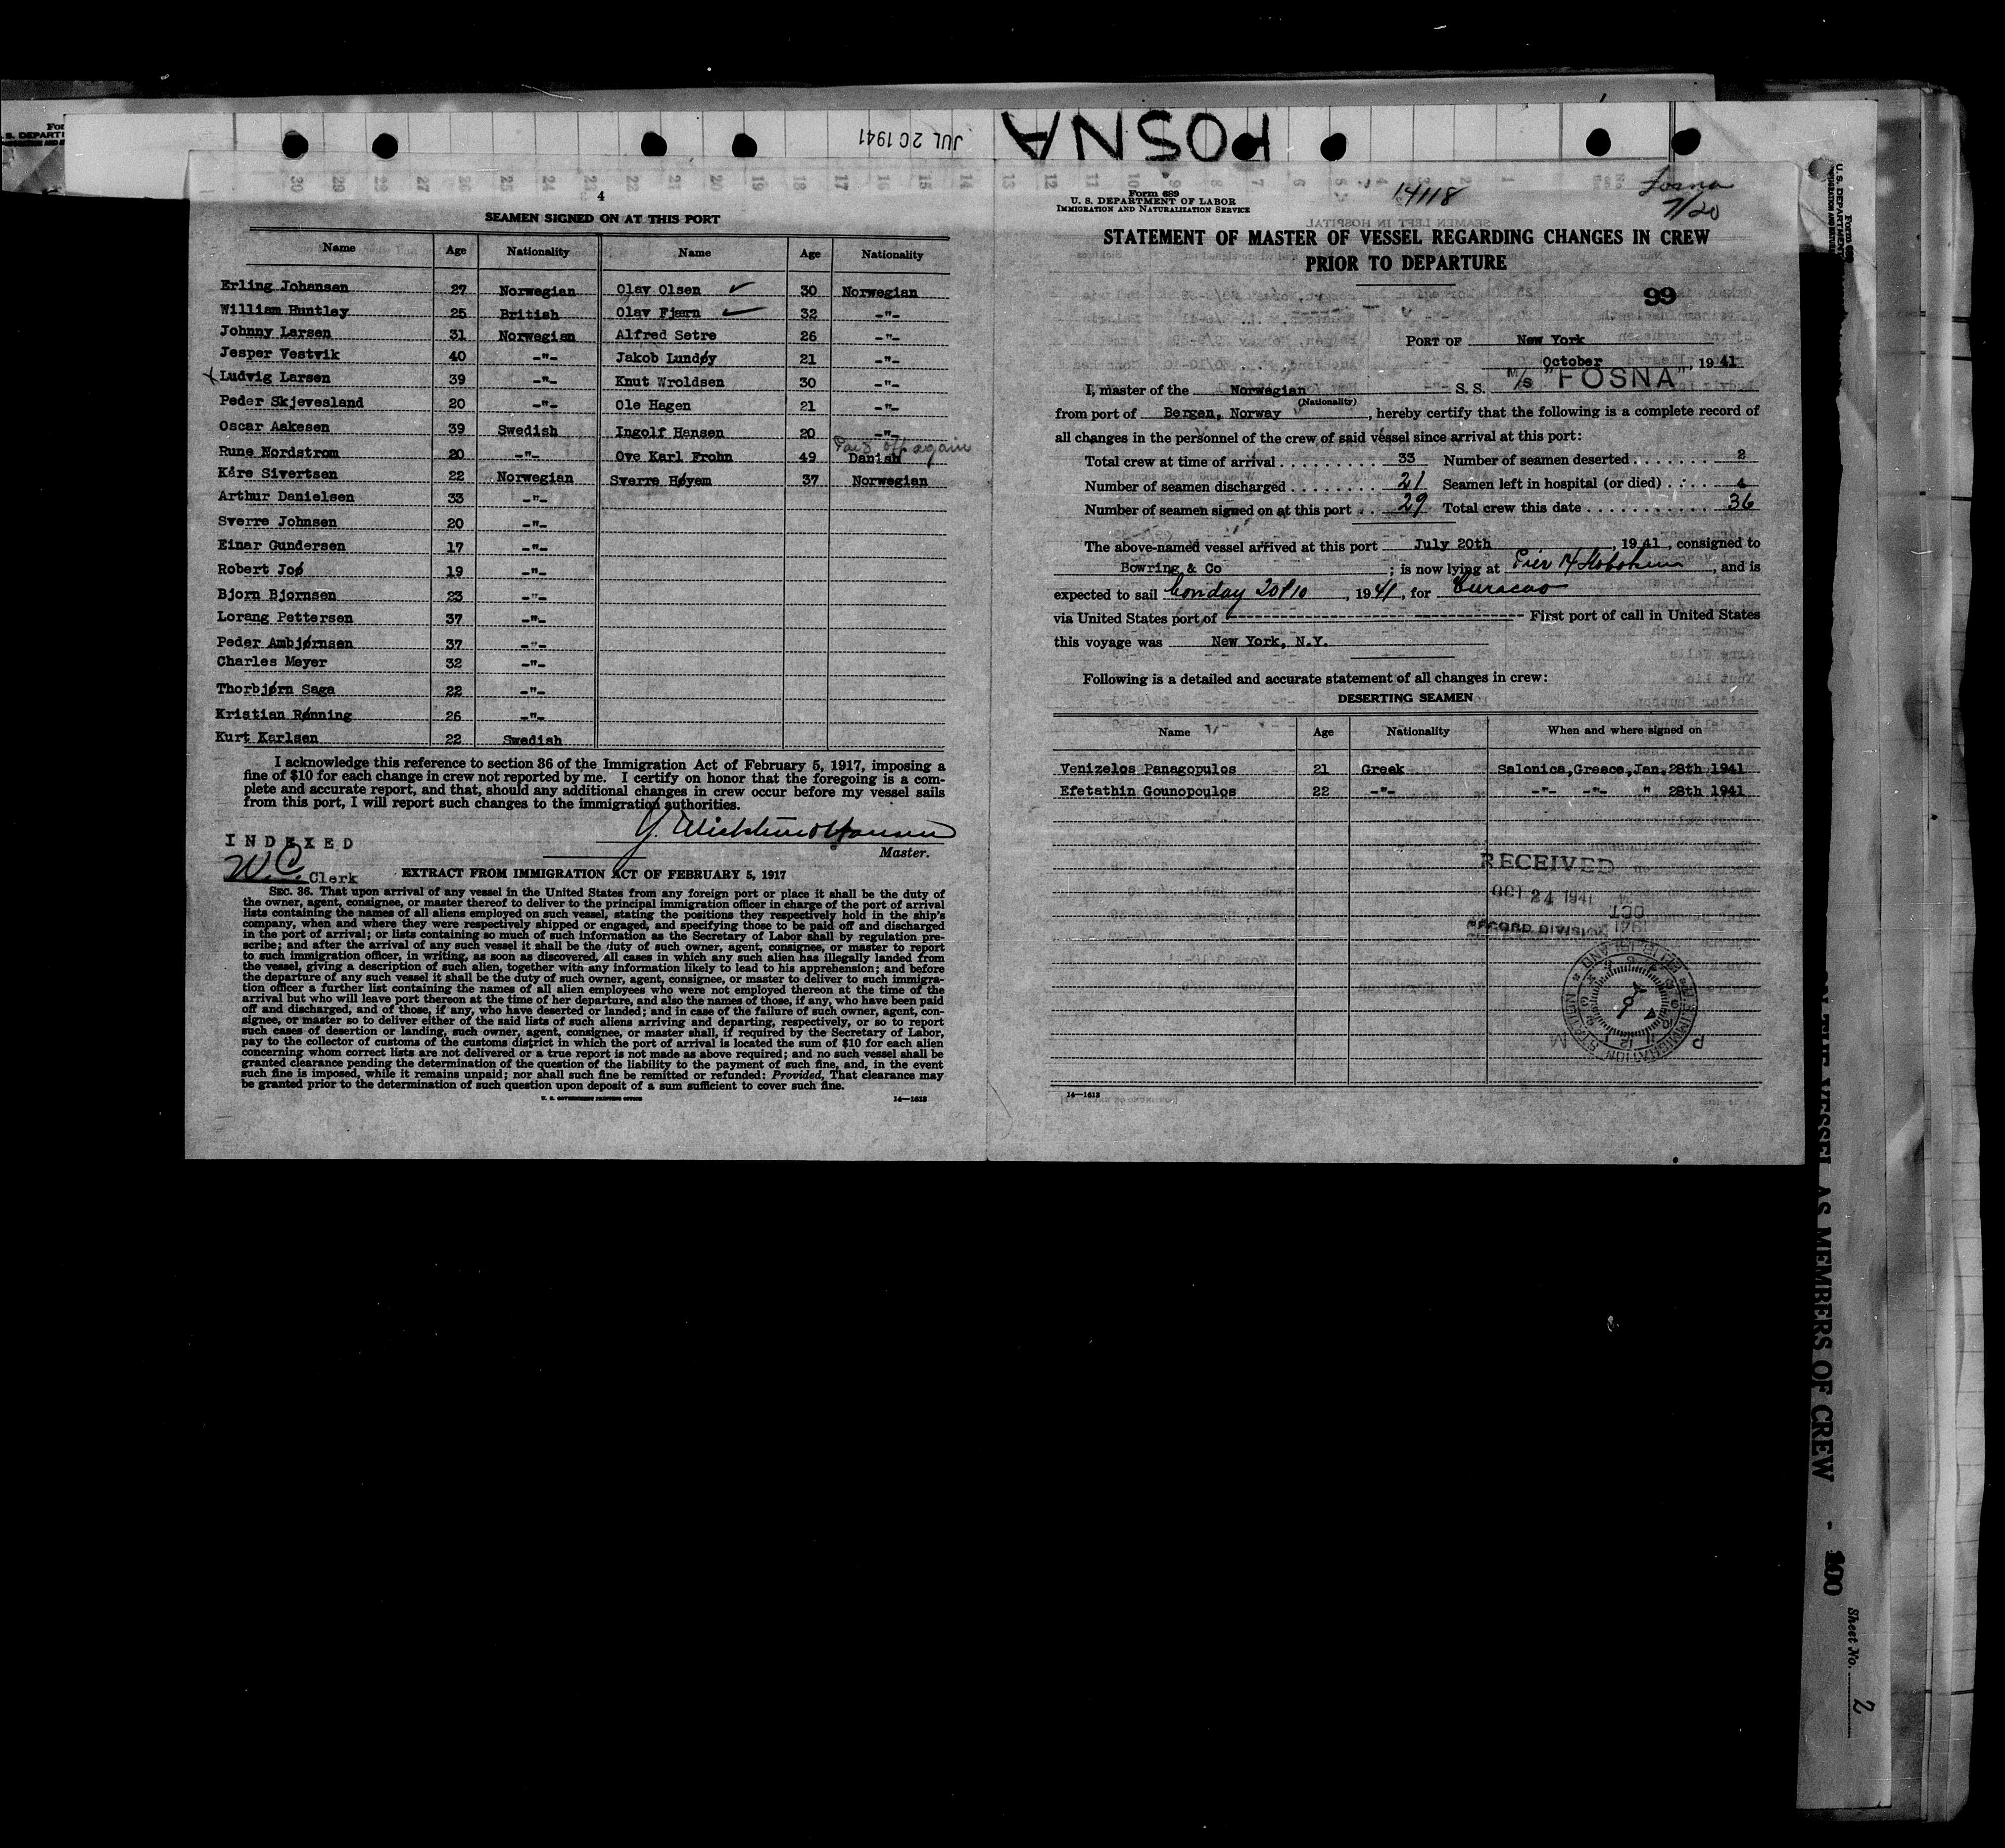 JUL 20 1941
FOSNA
4
SEAMEN SIGNED ON AT THIS PORT
Name Age Nationality Name Age Nationality
Erling Johansen 27 Norwegian Olav Olsen 30 Norwegian
William Huntley 25 British Olav Fjærn 32 -"-
Johnny Larsen 31 Norwegian Alfred Setre 26 -"-
Jesper Vestvik 40 -"- Jakob Lundøy 21 -"-
Ludvig Larsen 39 -"- Knut Wroldsen 30 -"-
Peder Skjevesland 20 -"- Ole Hagen 21 -"-
Oscar Aakesen 39 Swedish Ingolf Hansen 20 -"-
Paid off again
Rune Nordstrom 20 -"- Ove Karl Frohn 49 Danish
Kåre Sivertsen 22 Norwegian Sverre Høyem 37 Norwegian
Arthur Danielsen 33 -"-
Sverre Johnsen 20 -"-
Einar Gundersen 17 -"-
Robert Joø 19 -"-
Bjorn Bjornsen 23 -"-
Lorang Pettersen 37 -"-
Peder Ambjørnsen 37 -"-
Charles Meyer 32 -"-
Thorbjørn Saga 22 -"-
Kristian Rønning 26 -"-
Kurt Karlsen 22 Swedish
I acknowledge this reference to section 36 of the Immigration Act of February 5, 1917, imposing a
fine of $10 for each change in crew not reported by me. I certify on honor that the foregoing is a com-
plete and accurate report, and that, should any additional changes in crew occur before my vessel sails
from this port, I will report such changes to the immigration authorities.
Master.
INDEXED
W.C. Clerk
EXTRACT FROM IMMIGRATION ACT OF FEBRUARY 5, 1917
SEC. 36. That upon arrival of any vessel in the United States from any foreign port or place it shall be the duty of
the owner, agent, consignee, or master thereof to deliver to the principal immigration officer in charge of the port of arrival
lists containing the names of all aliens employed on such vessel, stating the positions they respectively hold in the ship's
company, when and where they were respectively shipped or engaged, and specifying those to be paid off and discharged
in the port of arrival; or lists containing so much of such information as the Secretary of Labor shall by regulation pre-
scribe; and after the arrival of any such vessel it shall be the duty of such owner, agent, consignee, or master to report
to such immigration officer, in writing, as soon as discovered, all cases in which any such alien has illegally landed from
the vessel, giving a description of such alien, together with any information likely to lead to his apprehension; and before
the departure of any such vessel it shall be the duty of such owner, agent, consignee, or master to deliver to such immigra-
tion officer a further list containing the names of all alien employees who were not employed thereon at the time of the
arrival but who will leave port thereon at the time of her departure, and also the names of those, if any, who have been paid
off and discharged, and of those, if any, who have deserted or landed; and in case of the failure of such owner, agent, con-
signee, or master so to deliver either of the said lists of such aliens arriving and departing, respectively, or so to report
such cases of desertion or landing, such owner, agent, consignee, or master shall, if required by the Secretary of Labor,
pay to the collector of customs of the customs district in which the port of arrival is located the sum of $10 for each alien
concerning whom correct lists are not delivered or a true report is not made as above required; and no such vessel shall be
granted clearance pending the determination of the question of the liability to the payment of such fine, and, in the event
such fine is imposed, while it remains unpaid; nor shall such fine be remitted or refunded: Provided, That clearance may
be granted prior to the determination of such question upon deposit of a sum sufficient to cover such fine.
U. S. GOVERNMENT PRINTING OFFICE 14—1612
Form 689
U. S. DEPARTMENT OF LABOR
IMMIGRATION AND NATURALIZATION SERVICE
14118
Fosna
7/20
STATEMENT OF MASTER OF VESSEL REGARDING CHANGES IN CREW
PRIOR TO DEPARTURE
99
PORT OF New York
October, 1941
I, master of the Norwegian S. S. M/S "FOSNA",
(Nationality)
from port of Bergen, Norway, hereby certify that the following is a complete record of
all changes in the personnel of the crew of said vessel since arrival at this port:
Total crew at time of arrival 33 Number of seamen deserted 2
Number of seamen discharged 21 Seamen left in hospital (or died) 4
Number of seamen signed on at this port 29 Total crew this date 36
The above-named vessel arrived at this port July 20th, 1941, consigned to
Bowring & Co; is now lying at Pier 14 Hoboken, and is
expected to sail Monday 20/10, 1941, for Curacao
via United States port of ---------- First port of call in United States
this voyage was New York, N.Y.
Following is a detailed and accurate statement of all changes in crew:
DESERTING SEAMEN
Name Age Nationality When and where signed on
Venizelos Panagopulos 21 Greek Salonica,Greece,Jan.28th 1941
Efstathin Gounopoulos 22 -"- -"- -"- " 28th 1941
RECEIVED
OCT 24 1941
RECORD DIVISION
14—1612
VESSEL AS MEMBERS OF CREW - 100
Sheet No. 2